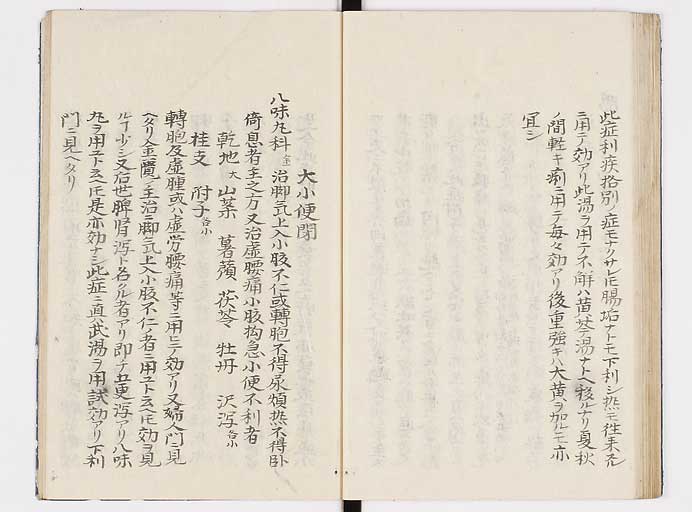 此症利疾格別ノ症モナクサレ𪜈腸垢ナトモ下利シ熱モ往来スル
ニ用テ効アリ此湯ヲ用テ不解ハ黄芩湯ナトヘ移ルナリ夏秋
ノ間軽キ痢ニ用テ毎々効アリ後重強キハ大黄ヲ加ルモ亦
宜シ
大小便閉
八味丸料 治脚気上入小腹不仁或轉胞不得尿煩熱不得卧
倚息者主之方又治虚腰痛小腹拘急小便不利者
乾地大 山茱 薯蕷 茯苓 牡丹 沢瀉各小
桂支 附子各小
轉胞及虚腫或ハ虚労腰痛等ニ用ヒテ効アリ又婦人門ニ見
ヘタリ金匱ノ主治ニ脚気上入小腹不仁ノ者ニ用ユト云𪜈効ヲ見
ル少シ又后世脾腎瀉ト名クル者アリ即チ五更瀉アリ八味
丸ヲ用ユト云𪜈是亦効ナシ此症ニ真武湯ヲ用試効アリ下利
門ニ見ヘタリ